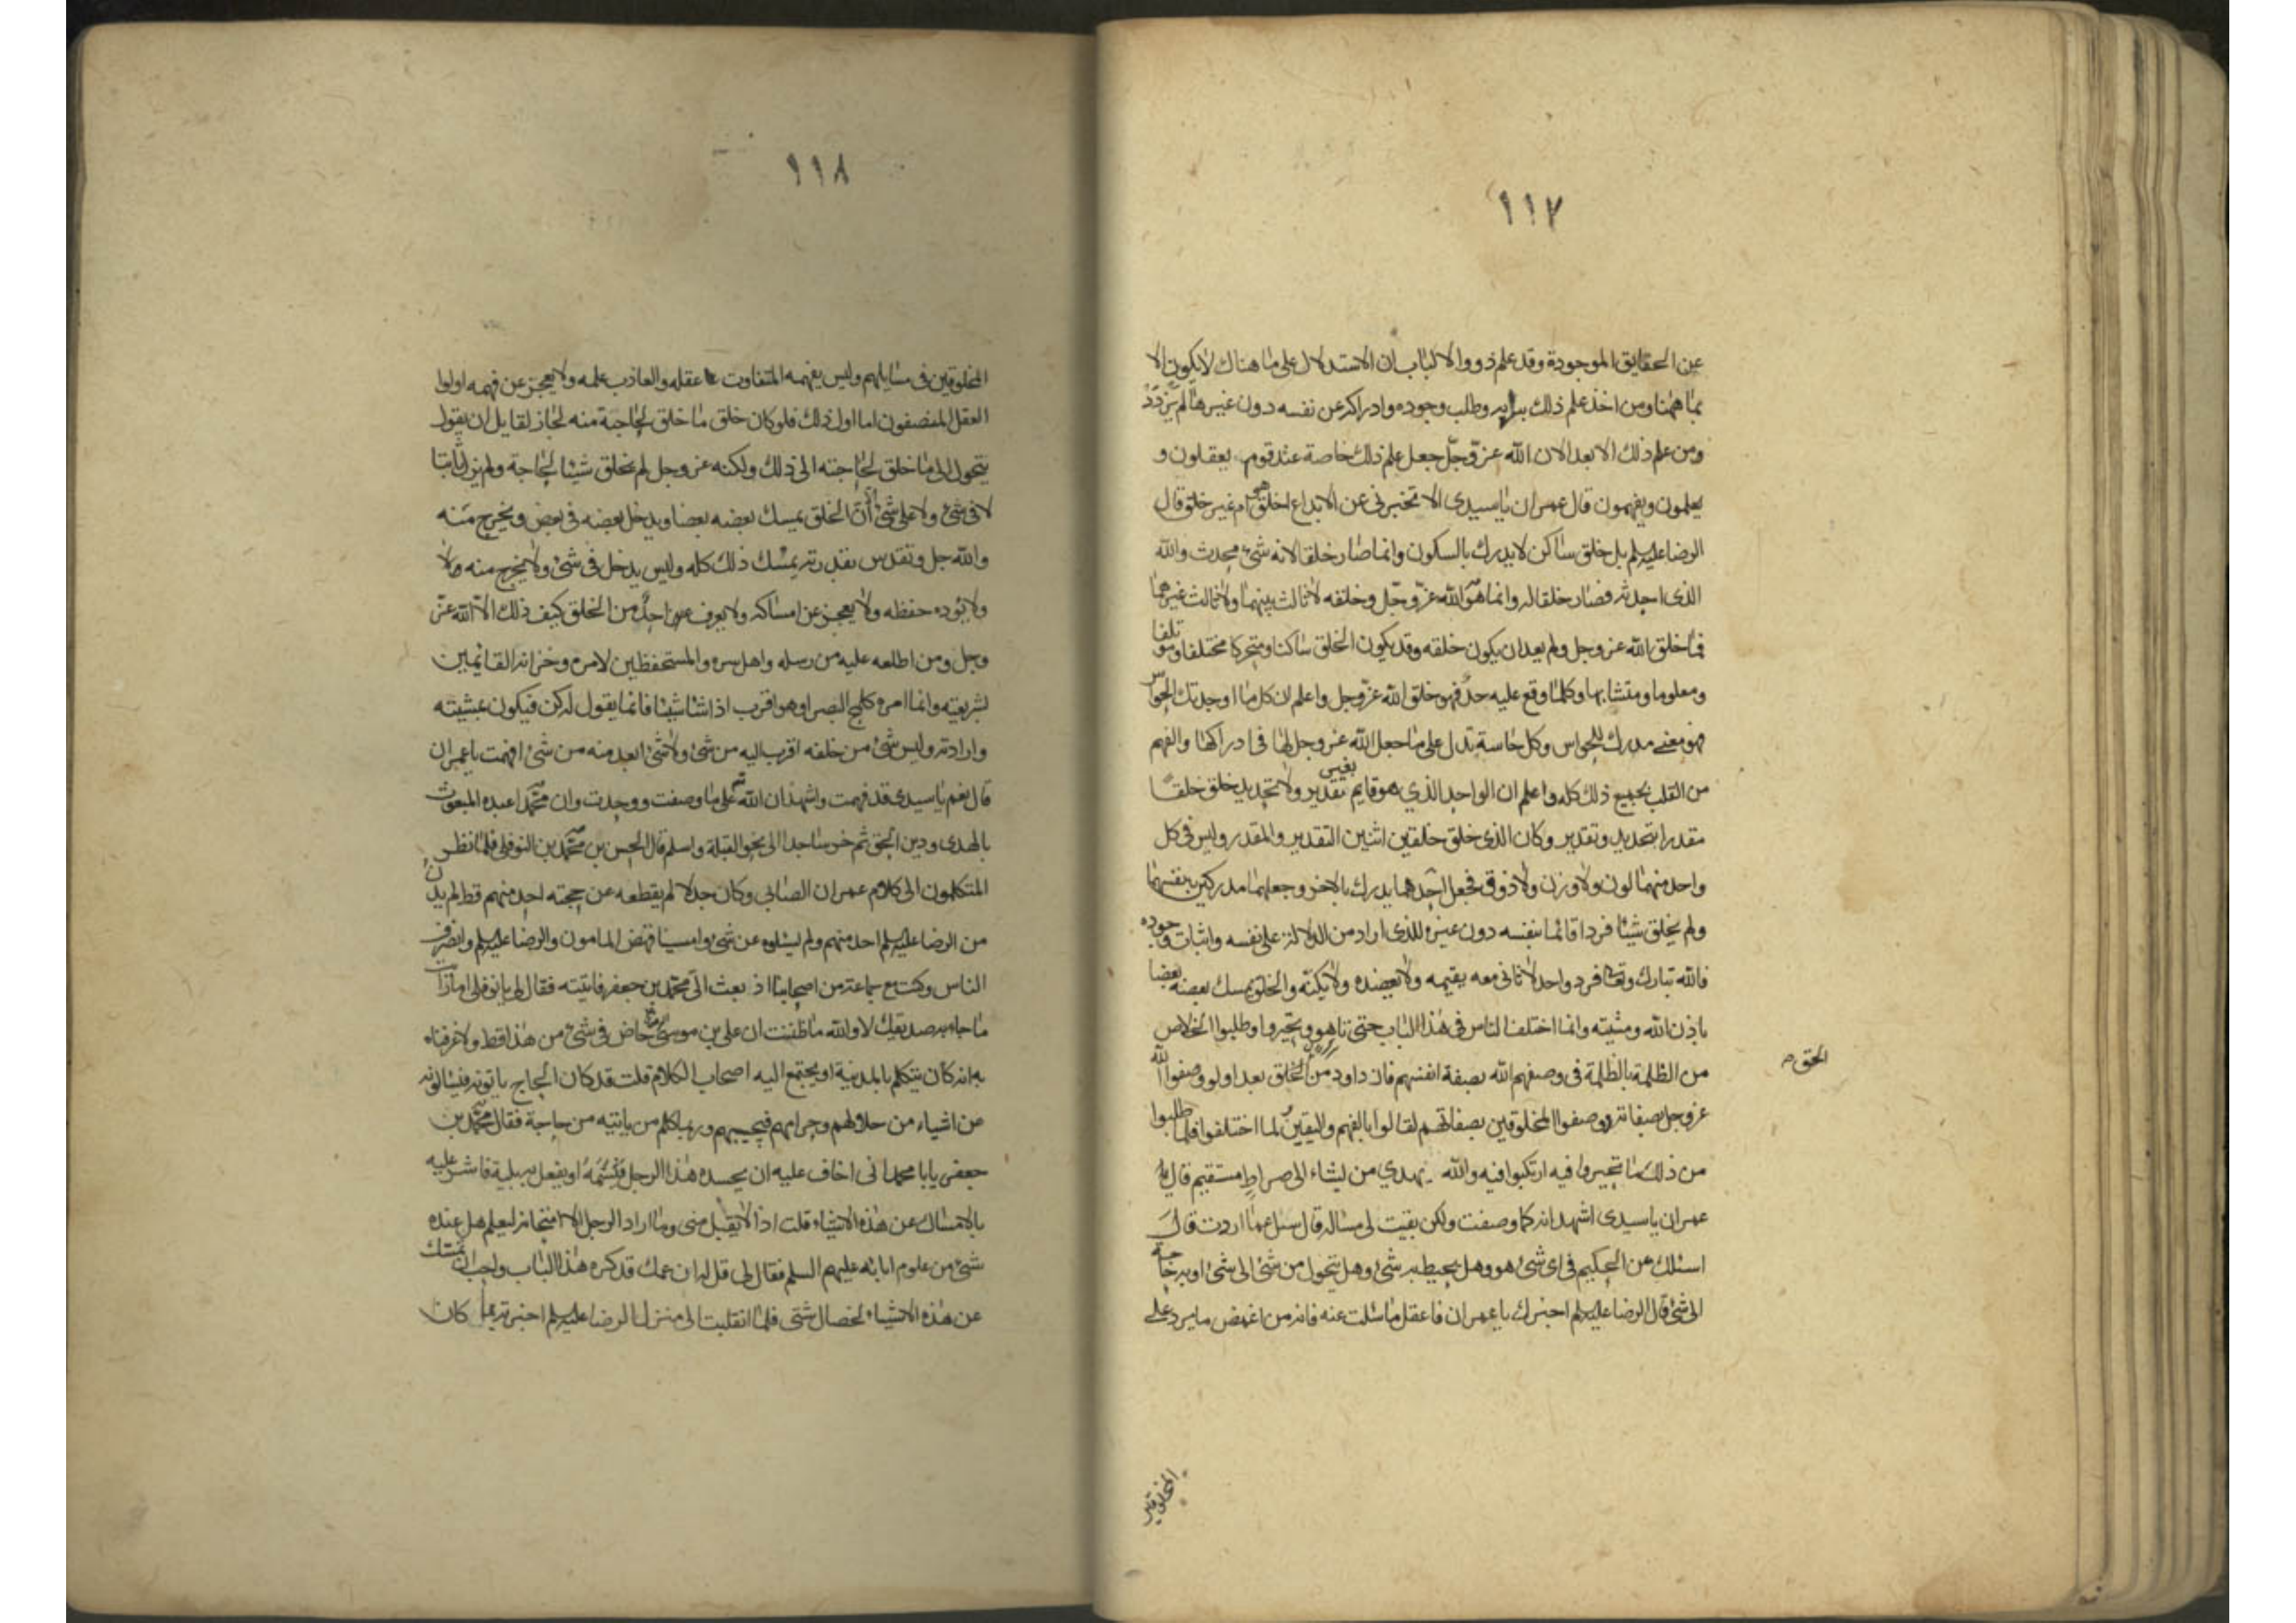 ١١٧
عن الحقايق الموجودة وقد علم ذووا الالباب ان الاستدلال على ما هناك لا يكون الا
بما ههنا ومن اخذ علم ذلك برايه وطلب وجوده وادراكه عن نفسه دون غيرها لم يزدد
ومن علم ذلك الا بعدا لان الله عز وجل جعل علم ذلك خاصة عند قوم يعقلون و
يعلمون ويفهمون قال عمران يا سيدي الا تخبرني عن الابداع اخلق هو ام غير خلق قال
الرضا عليه السلم بل خلق ساكن لا يدرك بالسكون وانما صار خلقا لانه شئ محدث والله
الذي احدثه فصار خلقا له وانما هو الله عز وجل وخلقه لا ثالث بينهما ولا ثالث غيرهما
فما خلق الله عز وجل ولم يعد ان يكون خلقه وقد يكون الخلق ساكنا ومتحركا ومختلفا ومؤتلفا
ومعلوما ومتشابها وكلما وقع عليه حد فهو خلق الله عز وجل واعلم ان كل ما اوجدتك الحواس
فهو معنى مدرك للحواس وكل حاسة تدل على ما جعل الله عز وجل لها في ادراكها والفهم
من القلب بجميع ذلك كله واعلم ان الواحد الذي هو قايم بغير تقدير ولا تحديد خلق خلقا
مقدرا بتحديد وتقدير وكان الذي خلق خلقين اثنين التقدير والمقدر وليس في كل
واحد منهما لون ولا وزن ولا ذوق فجعل احدهما يدرك بالاخر وجعلهما مدركين بنفسهما
ولم يخلق شيئا فردا قائما بنفسه دون غيره للذي اراد من الدلالة على نفسه واثبات وجوده
فالله تبارك وتعالى فرد واحد لا ثاني معه يقيمه ولا يعضده ولا يكنه والخلق يمسك بعضه بعضا
باذن الله ومشيته وانما اختلف الناس في هذا الباب حتى تاهوا وتحيروا وطلبوا الخلاص
من الظلمة بالظلمة في وصفهم الله بصفة انفسهم فازدادوا من الحق بعدا ولو وصفوا الله
الحق
عز وجل بصفاته ووصفوا المخلوقين بصفاتهم لقالوا بالفهم واليقين ولما اختلفوا فلما طلبوا
من ذلك ما تحيروا فيه ارتكبوا فيه والله يهدي من يشاء الى صراط مستقيم قال
عمران يا سيدي اشهد انه كما وصفت ولكن بقيت لي مسالة قال سل عما اردت قال
اسئلك عن الحكيم في اي شئ هو وهل يحيط به شئ وهل يتحول من شئ الى شئ او به حاجة
الى شئ قال الرضا عليه السلم اخبرك يا عمران فاعقل ما سئلت عنه فانه من اغمض ما يرد على
المخلوقين
١١٨
المخلوقين في مسايلهم وليس يفهمه المتفاوت عقله والعاذب علمه ولا يعجز عن فهمه اولوا
العقل المنصفون اما اول ذلك فلو كان خلق ما خلق لحاجة منه لجاز لقايل ان يقول
يتحول الى ما خلق لحاجته الى ذلك ولكنه عز وجل لم يخلق شيئا لحاجة ولم يزل ثابتا
لا في شئ ولا على شئ الا ان الخلق يمسك بعضه بعضا ويدخل بعضه في بعض ويخرج منه
والله جل وتقدس بقدرته يمسك ذلك كله وليس يدخل في شئ ولا يخرج منه
ولا يؤده حفظه ولا يعجز عن امساكه ولا يعرف احد من الخلق كيف ذلك الا الله عز
وجل ومن اطلعه عليه من رسله واهل سره والمستحفظين لامره وخزانه القائمين
بشريعته وانما امره كلمح البصر او هو اقرب اذا شاء شيئا فانما يقول له كن فيكون بمشيته
وارادته وليس شئ من خلقه اقرب اليه من شئ ولا شئ ابعد منه من شئ افهمت يا عمران
قال نعم يا سيدي قد فهمت واشهد ان الله على ما وصفت ووحدت وان محمدا عبده المبعوث
بالهدى ودين الحق ثم خر ساجدا الى نحو القبلة واسلم قال الحسن بن محمد بن النوفلي فلما نظر
المتكلمون الى كلام عمران الصابي وكان جدلا لم يقطعه عن حجته احد منهم قط لم يدن
من الرضا عليه السلم احد منهم ولم يسئلوه عن شئ وامسينا فنهض المامون والرضا عليه السلم وانصرف
الناس وكنت مع جماعة من اصحابنا اذ بعث الي محمد بن جعفر فاتيته فقال لي يا نوفلي اما رايت
ما جاء به صديقك لا والله ما ظننت ان علي بن موسى خاض في شئ من هذا قط ولا عرفناه
به انه كان يتكلم بالمدينة او يجتمع اليه اصحاب الكلام قلت قد كان الحجاج ياتونه فيسالونه
عن اشياء من حلالهم وحرامهم فيجيبهم وربما كلم من ياتيه من حاجة فقال محمد بن
جعفر يا با محمد اني اخاف عليه ان يحسده هذا الرجل فيسمه او يفعل به بلية فاشر عليه
بالامساك عن هذه الاشياء قلت اذا لا يقبل مني وما اراد الرجل الا امتحانه ليعلم هل عنده
شئ من علوم ابائه عليهم السلم فقال لي قل له ان عمك قد كره هذا الباب واحب ان تمسك
عن هذه الاشياء لخصال شتى فلما انقلبت الى منزل الرضا عليه السلم اخبرته بما كان